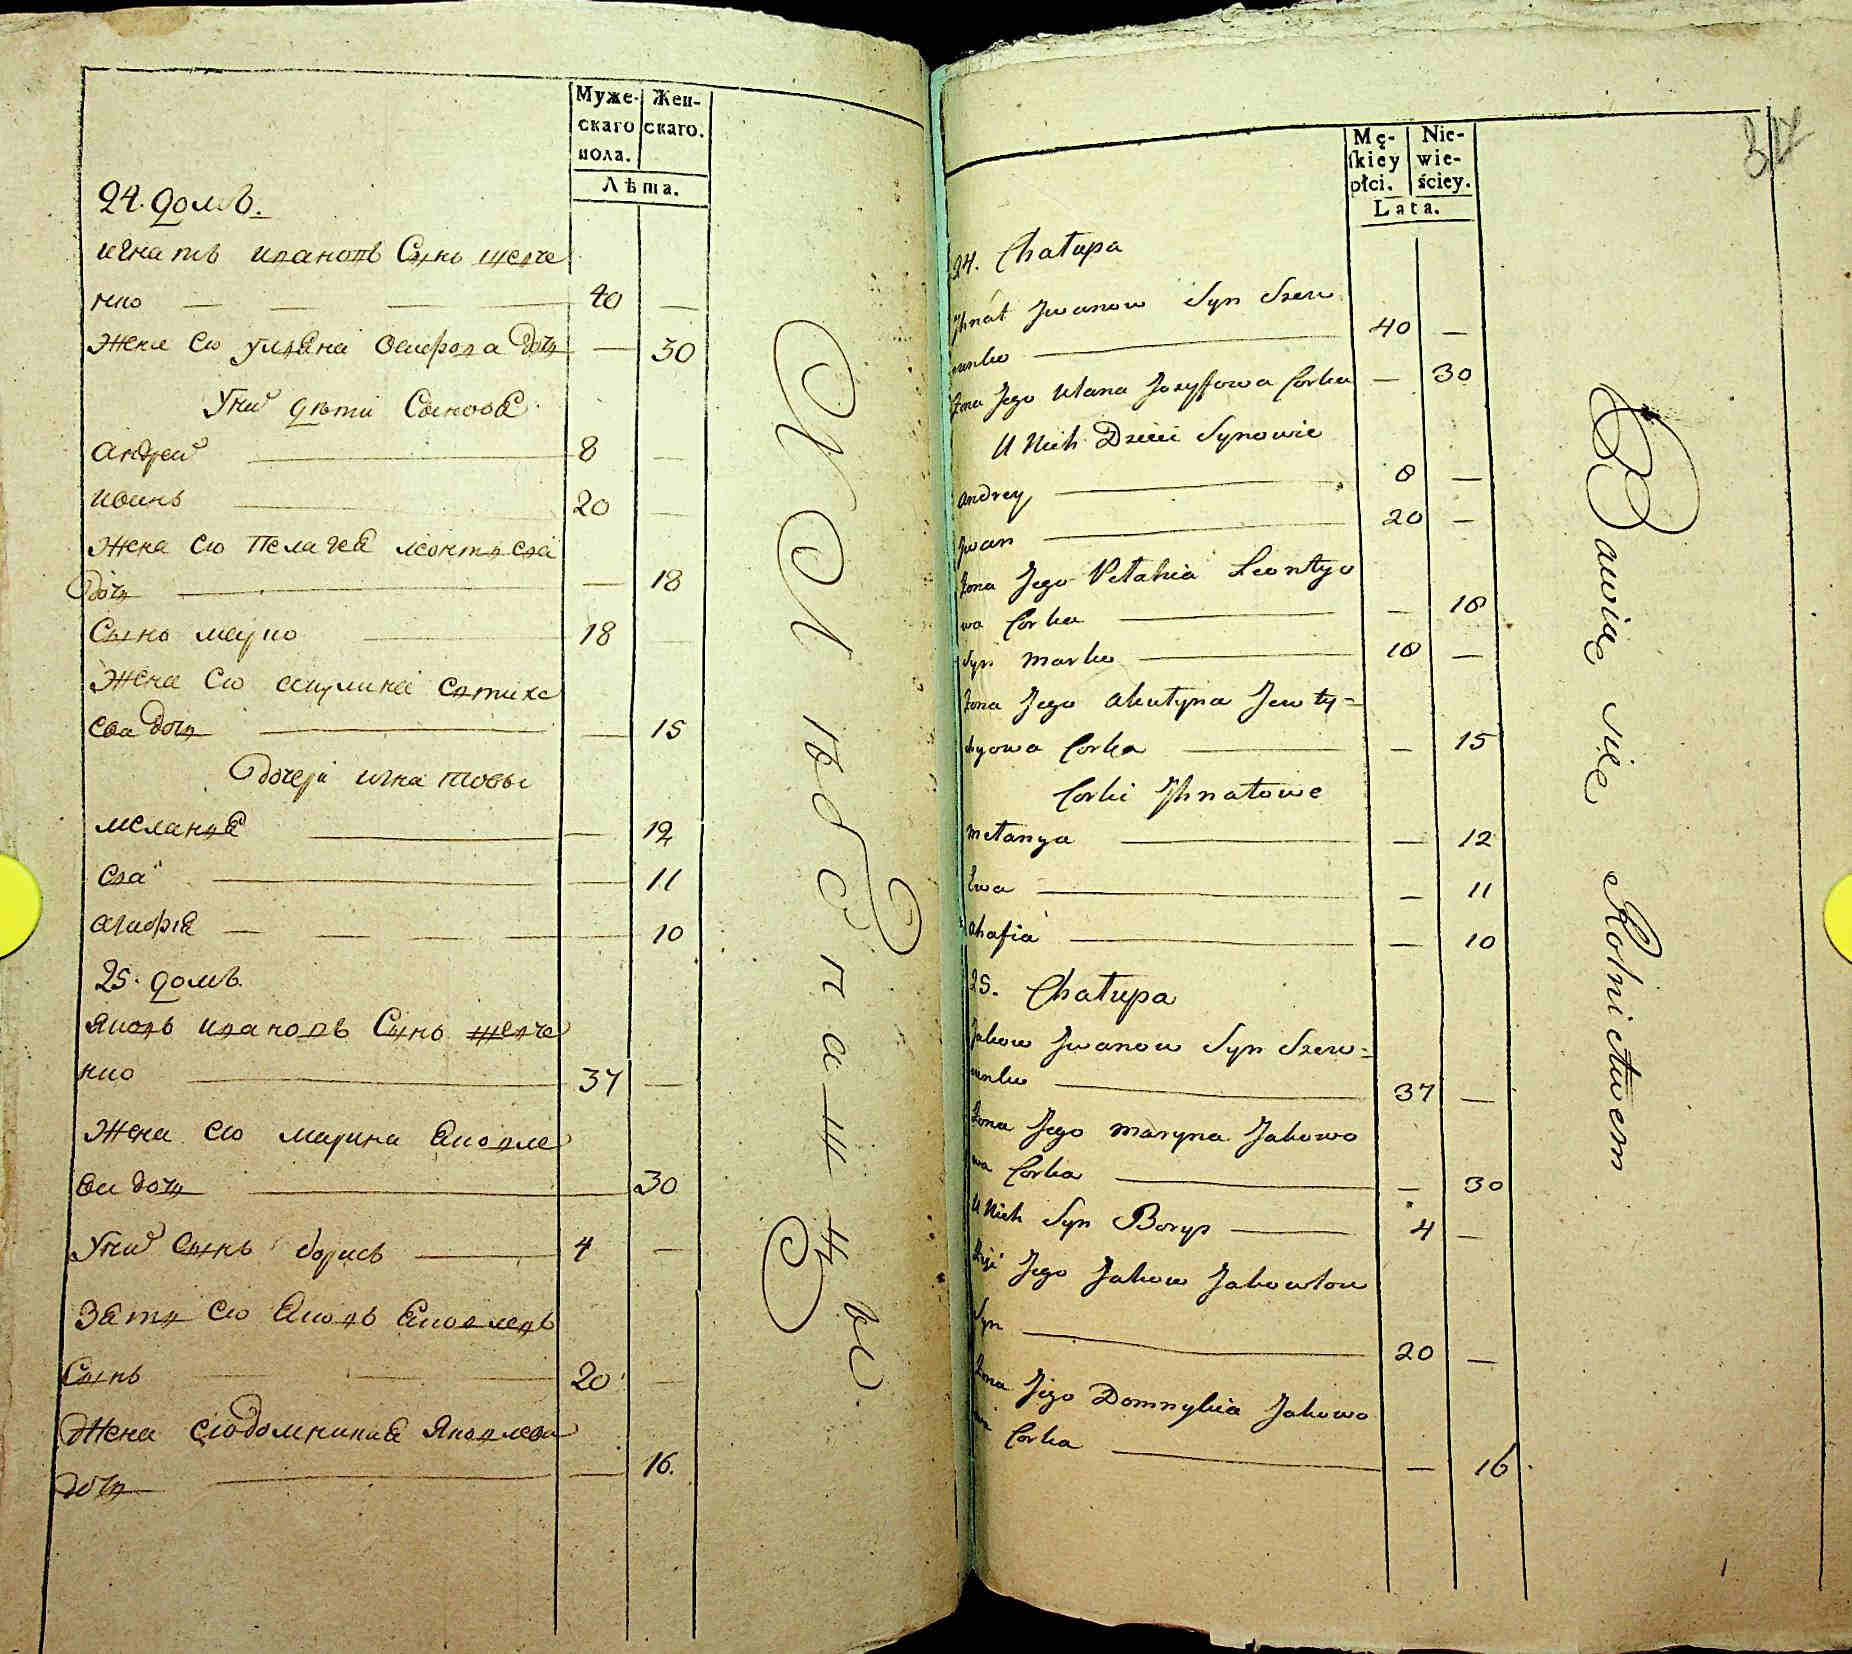 Муже-
скаго
пола.
Жен-
скаго.
Лѣта.
24. домъ.
игнатъ ивановъ Сынъ шевче
нко — — — 40 —
жена его уляна осифова дочь — 30
Унихъ дѣти Сыновя
андрей — 8 —
иванъ — 20 —
жена его пелагея леонтьева
дочь — — 18
Сынъ марко — 18 —
жена его акулина евтихе
ева дочь — — 15
дочери игнатовы
меланья — — 12
ева — — 11
агафия — — — — 10
25. домъ.
яковъ ивановъ Сынъ шевче
нко — 37 —
жена его марина яковле
ва дочь — 30
Унихъ Сынъ борисъ — 4 —
зять его яковъ яковлевъ
Сынъ — — 20 —
жена его домникия яковлева
дочь — — 16.
Мę-
ſkiey
płci.
Nie-
wie-
ściey.
Lata.
24. Chałupa
Jhnat Jwanow Syn Szew
czenko — 40 —
Żona Jego Ulana Jozyffowa Corka — 30
U Nich Dzieci Synowie
Andrey — 8 —
Jwan — 20 —
Żona Jego Pełahia Leontyo
wa Corka — — 18
Syn Marko — 18 —
Żona Jego Akulyna Jewty=
chyowa Corka — — 15
Corki Jhnatowe
Mełanya — — 12
Ewa — — 11
Ahafia — — 10
25. Chałupa
Jakow Jwanow Syn Szew=
czenko — 37 —
Żona Jego Maryna Jakowo
wa Corka — — 30
U Nich Syn Borys — 4 —
Jego Jakow Jakowlow
Syn — 20 —
Żona Jego Domnykia Jakowo
wa Corka — — 16
Bawią się Rolnictwem